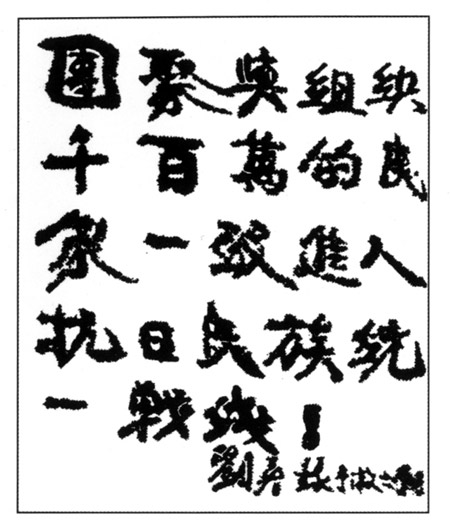 團聚與組织
千百萬的民
眾一致進入
抗日民族統
一戰线！
劉